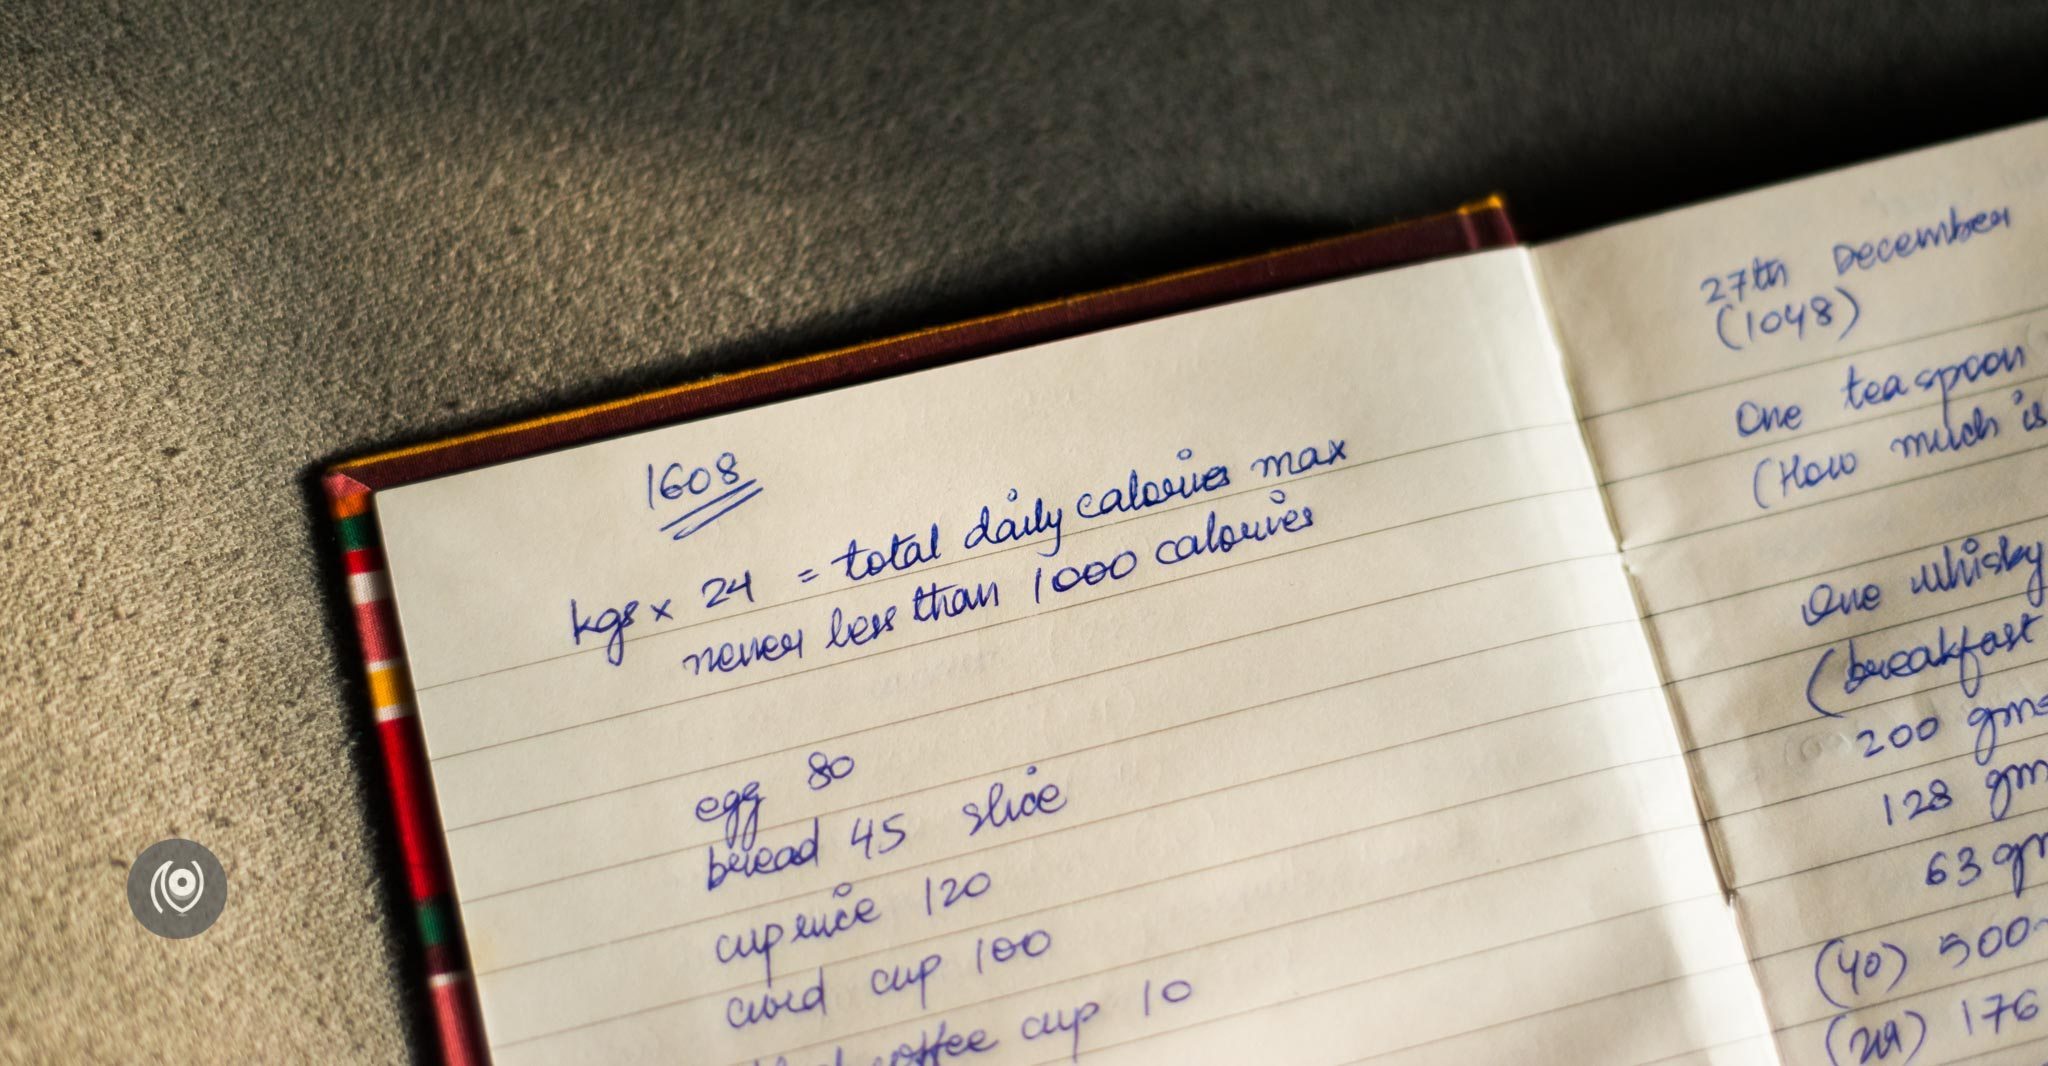 1608
kgs x 24 = total daily calories max
never less than 1000 calories
egg 80
bread 45 slice
cup rice 120
curd cup 100
coffee cup 10
27th December
(1048)
One teaspoon
(How much is
One whisky
(breakfast
200 gms
128 gm
63 gm
(40) 500
176